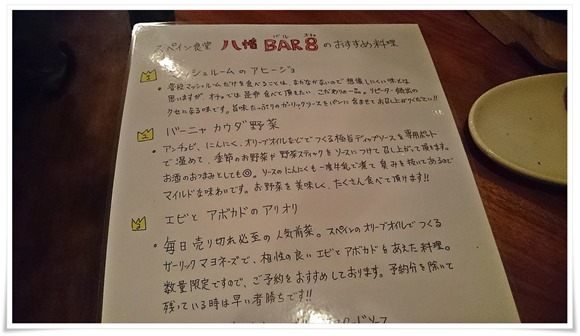 スペイン食堂 八幡 BAR8 のおすすめ料理
バル
1
シュルームのアヒージョ
• 普段マッシュルームだけを食べることは、なかなかないので想像しにくい味とは
思いますが、オチョでは是非食べて頂きたい こだわりの一品。リピーター続出の
クセになる味です。旨味たっぷりのガーリックソースをパンに含ませてお召し上がりください!!
2
バーニャカウダ野菜
• アンチョビ、にんにく、オリーブオイルなどでつくる極旨ディップソースを専用ポット
で温めて、季節のお野菜や野菜スティックをソースにつけて召し上がって頂きます。
お酒のおつまみとしても◎。ソースのにんにくも一度牛乳で煮て臭みを抜いてあるので
マイルドな味わいです。お野菜を美味しく、たくさん食べて頂けます!!
3
エビとアボカドのアリオリ
• 毎日売り切れ必至の人気前菜。スペインのオリーブオイルでつくる
ガーリックマヨネーズで、相性の良いエビとアボカドをあえた料理。
数量限定ですので、ご予約をおすすめしております。予約分を除いて
残っている時は早い者勝ちです!!